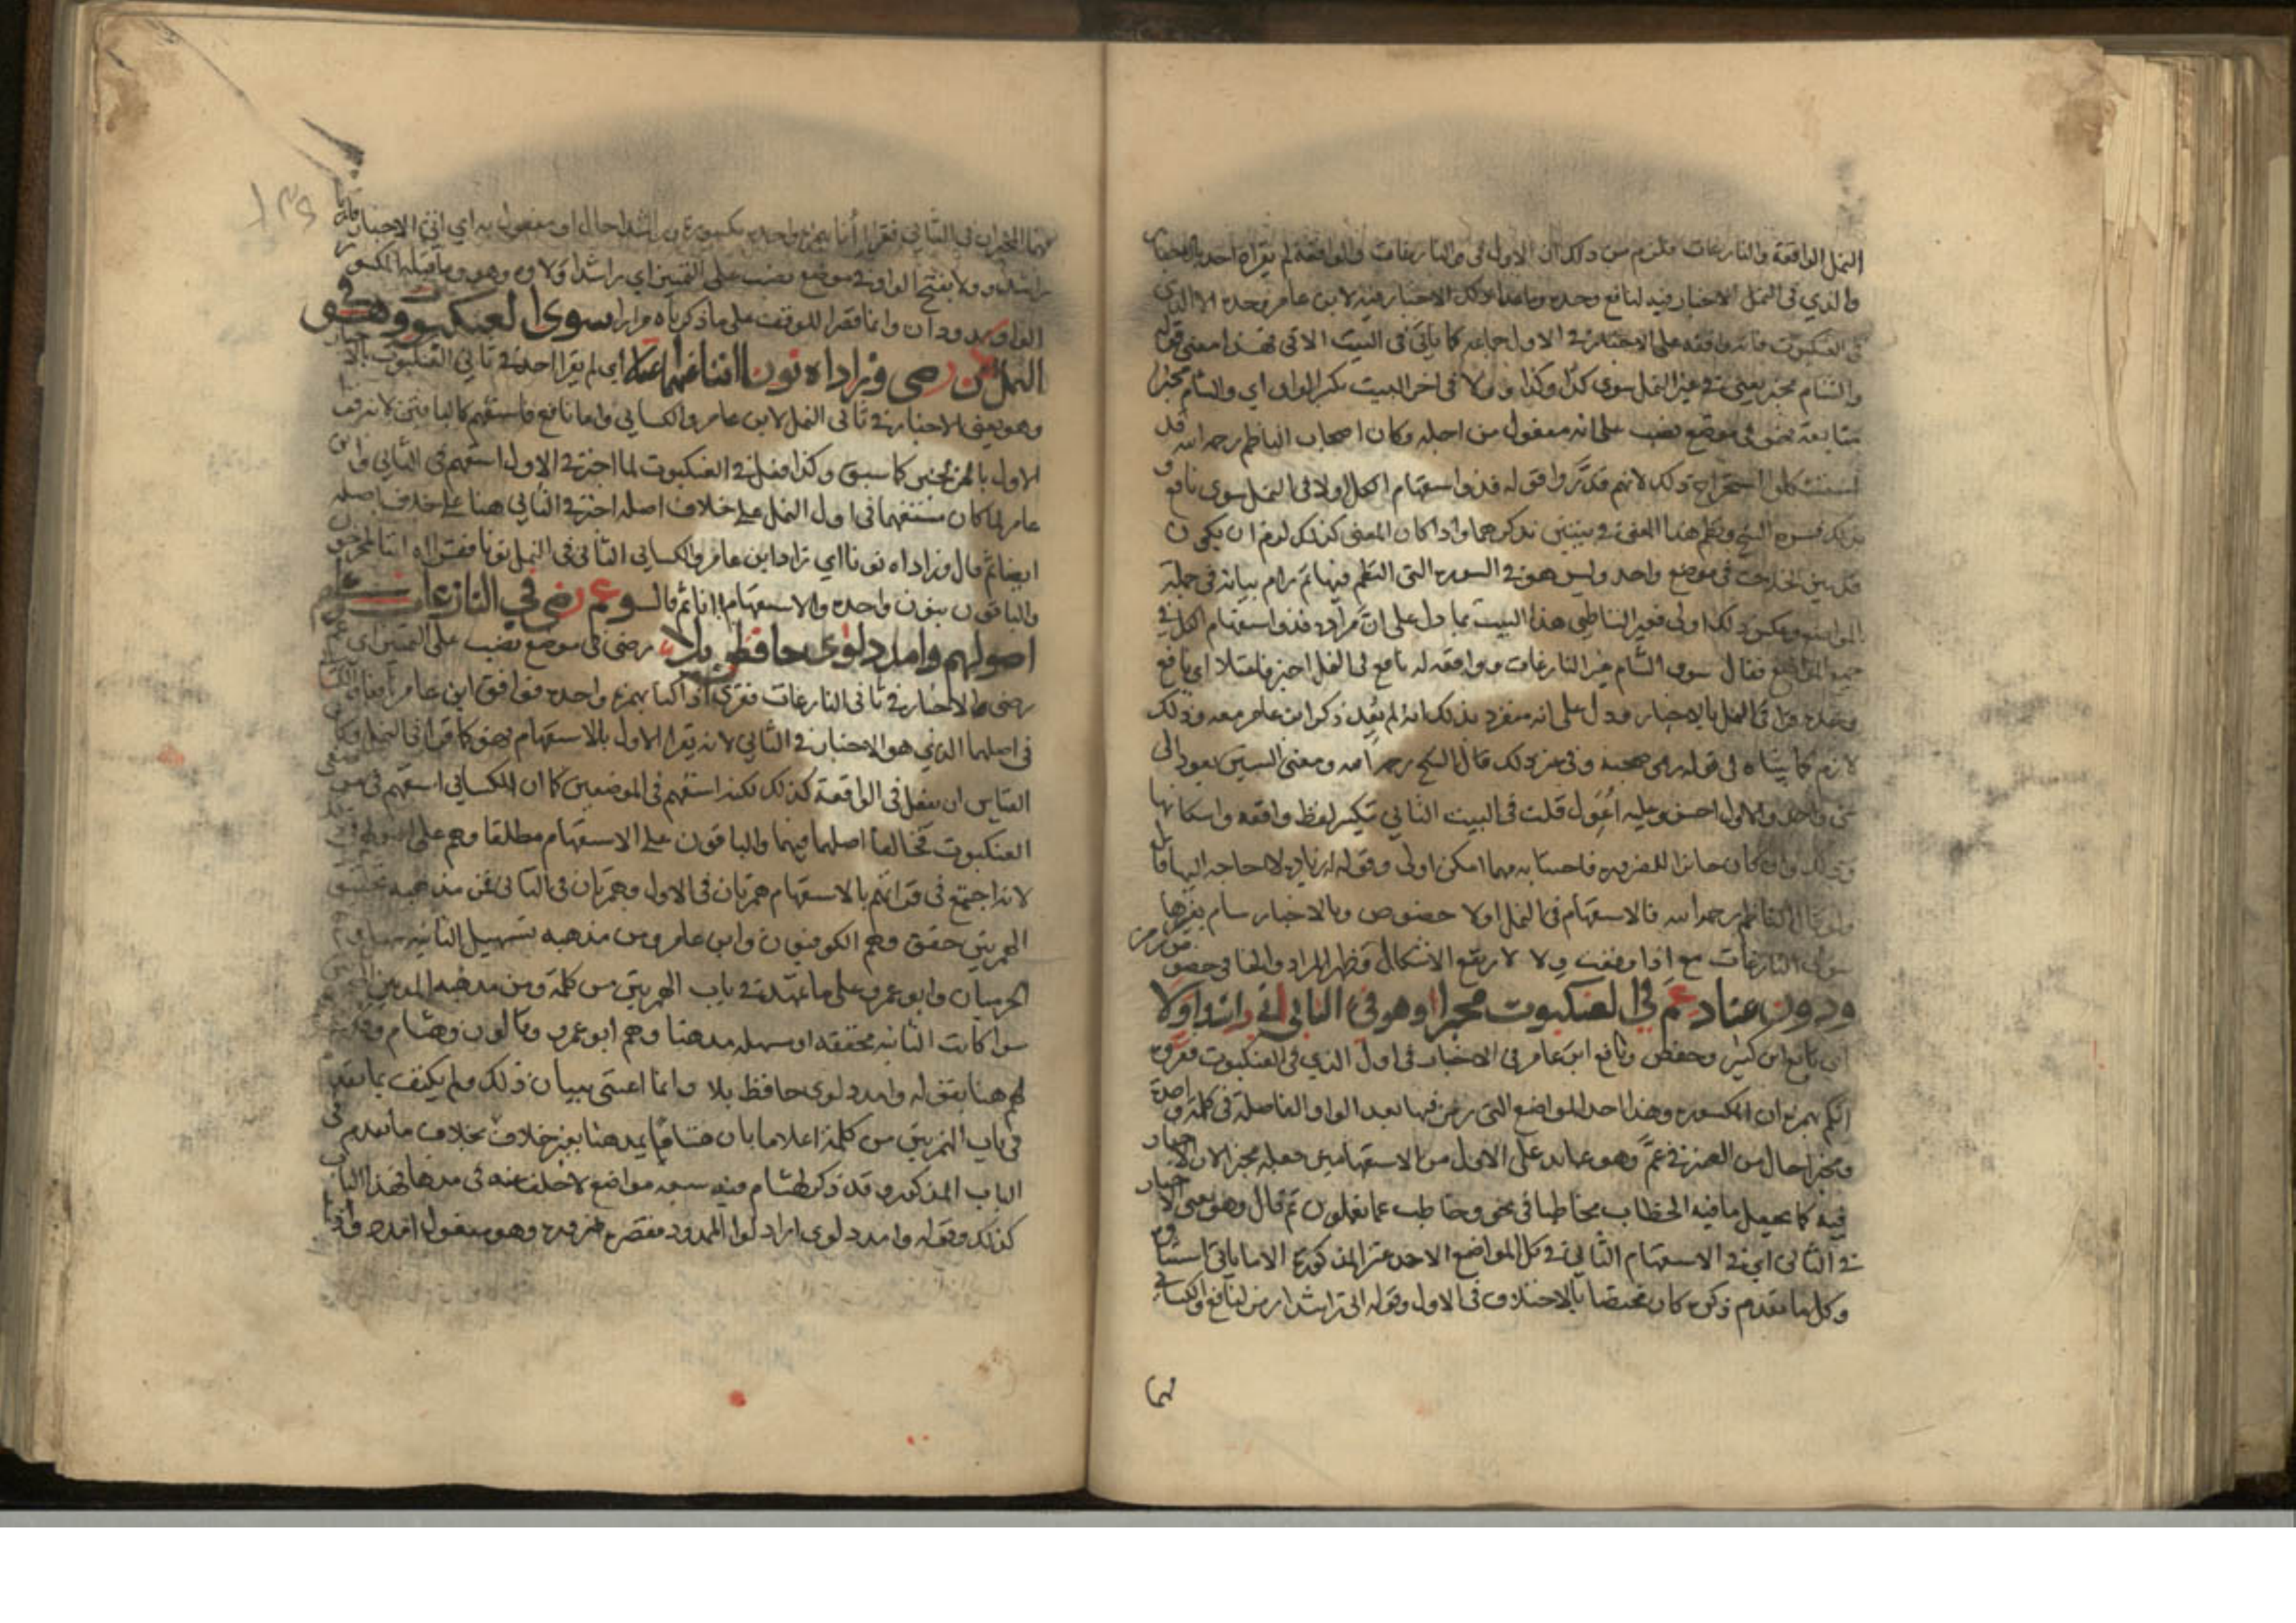 النمل الواقعة والنازعات فلزم من ذلك ان الاول في والنازعات والواقعة لم يقراه احد بالاخبار
والذي في النمل الاخبار فيه لنافع وحده وما عدا ذلك الاخبار فيه لابن عامر وحده الا الذي
في العنكبوت فانه وافقه على الاخبار في الاول جماعة كما ياتي في البيت الاتي فهذا معنى قوله
والشام مخبر يعني في غير النمل سوى كذا وكذا وولا في اخر البيت بكسر الواو اي والشام مخبر ذا
متابعة فهو في موضع نصب على انه مفعول من اجله وكان اصحاب الناظم رحمه الله قد
استشكلوا استخراج ذلك لانهم قدروا قوله فذو استفهام الكل اولا في النمل سوى نافع
المعنى في بيتين نذكرهما واذا كان المعنى كذلك لزم ان يكون
قد بين الخلاف في موضع واحد وليس هو في السورة التي النظم فيها ثم رام بيانه في جملة
المواضع وعكس ذلك اولى فغير الشاطبي هذا البيت بما دل على ان مراده فذو استفهام الكل في
جميع المواضع فقال سوى الشام غير النازعات وواقعة له نافع في النمل اخبر فاعتلا اي نافع
وحده قرا في النمل بالاخبار ودل على انه منفرد بذلك انه لم يعد ذكر ابن عامر معه وذلك
لازم كما بيناه في قوله رمى صحبة وفي غير ذلك قال الشيخ رحمه الله ومعنى البيتين يعود الى
شي واحد والاول احسن وعليه اعول قلت في البيت الثاني تنكير لفظ واقعة واسكانها
وذلك وان كان جائزا للضرورة فاجتنابه مهما امكن اولى وقوله له زيادة لا حاجة اليها
ولو قال الناظم رحمه الله فالاستفهام في النمل اولا خصوص وبالاخبار شام بغيرها
سوى النازعات مع اذا وقعت ولا لارتفع الاشكال وظهر المراد والخا في خصوص رمز
ودون عناد عم في العنكبوت مخبرا وهو في الثاني اتى راشدا ولا
اي تابع ابن كثير وحفص ونافع ابن عامر في الاخبار في اول الذي في العنكبوت فقروه
انكم بهمزة ان المكسورة وهذا احد المواضع التي رمز فيها بعد الواو الفاصلة في كلمة واحدة
ومخبرا حال من الضمير في عم وهو عائد على الاول من الاستفهامين جعله مخبرا لان الاخبار
فيه كما يجعل ما فيه الخطاب مخاطبا في نحو وخاطب عما تعملون ثم قال وهو يعني الاخبار
في الثاني اي في الاستفهام الثاني في كل المواضع الاحد عشر المذكورة الا ما ياتي استثناوه
وكل ما تقدم ذكره كان مختصا بالاختلاف في الاول وقوله اتى راشدا رمز لنافع والكسائي
فهما
١٣٩
فهما المخبران في الثاني فقرا انا بهمزة واحدة مكسورة راشدا حال او مفعول به اي اتى الاخبار
راشدا وولا بفتح الواو في موضع نصب على التمييز اي راشدا ولاوه وهو وما قبله المكسور
الواو ممدودان وانما قصرا للوقف على ما ذكرناه مرارا سوى العنكبوت وهو في
النمل كن رضى وزاداه نونا اننا عنهما اعتلا اي لم يقرا احد في ثاني العنكبوت بالاخبار
وهو يعني الاخبار في ثاني النمل لابن عامر والكسائي واما نافع فاستفهم كالباقين لانه قرا
الاول بالخبر كما سبق وكذا فعل في العنكبوت لما اخبر في الاول استفهم في الثاني وابن
عامر لما كان مستفهما في اول النمل على خلاف اصله اخبر في الثاني هنا على خلاف اصله
ايضا ثم قال وزاداه نونا اي زاد ابن عامر والكسائي الثاني في النمل نونا فقراه اننا لمخرجون
والباقون بنون واحدة والاستفهام اانا ثم قال وعم رضى في النازعات
اصولهم وامدد لوى حافظ بلا رضى في موضع نصب على التمييز اي
رضى والاخبار في ثاني النازعات فقرى اذا كنا بهمزة واحدة فوافق ابن عامر نافعا والكسائي
في اصلهما الذي هو الاخبار في الثاني لانه يقرا الاول بالاستفهام فهو كما قرا في النمل وكان
القياس ان يفعل في الواقعة كذلك لكنه استفهم في الموضعين كما ان الكسائي استفهم في موضعي
العنكبوت فخالفا اصلهما فيهما والباقون على الاستفهام مطلقا وهم على اصولهم
لانه اجتمع في قراتهم بالاستفهام همزتان في الاول وهمزتان في الثاني فمن مذهبه تحقيق
الهمزتين حقق وهم الكوفيون وابن عامر ومن مذهبه تسهيل الثانية سهل وهم
الحرميان وابو عمرو على ما تمهد في باب الهمزتين من كلمة ومن مذهبه المد بين
سوا كانت الثانية محققة او مسهلة مد هنا وهم ابو عمرو وقالون وهشام وقد
لهم هنا بقوله وامدد لوى حافظ بلا وانما اعتنى ببيان ذلك ولم يكتف بما تقدم
في باب الهمزتين من كلمة اعلاما بان هشاما يمد هنا بغير خلاف بخلاف ما تقدم في
الباب المذكور وقد ذكر لهشام فيه سبعة مواضع لا خلف عنه في مدها فهذا الباب
كذلك وقوله وامدد لوى اراد لوا الممدود فقصره ضرورة وهو مفعول امدد